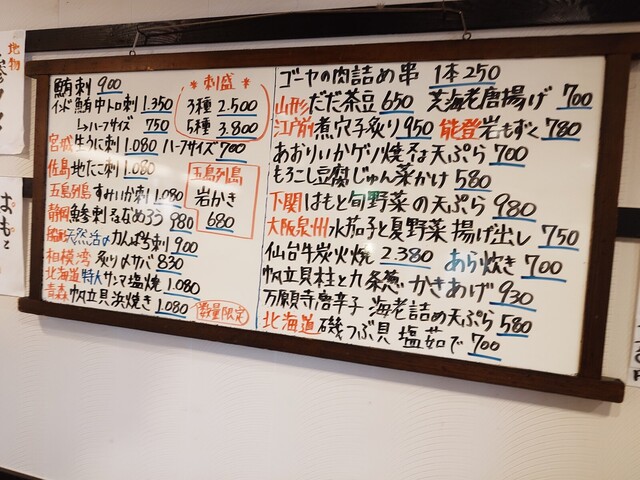 鮪刺 900
インド鮪中トロ刺 1.350
ハーフサイズ 750
宮城生うに刺 1.080 ハーフサイズ 700
佐島地たこ刺 1.080
五島列島すみいか刺 1.080
静岡鯵刺 なめろう 980
天然活〆かんぱち刺 900
相模湾炙り〆サバ 830
北海道特大サンマ塩焼 1.080
青森帆立貝浜焼き 1.080
数量限定
*刺盛*
3種 2.500
5種 3.800
五島列島
岩かき
680
ゴーヤの肉詰め串 1本250
山形だだ茶豆 650 芝海老唐揚げ 700
江戸前煮穴子炙り 950 能登岩もずく 780
あおりいかゲソ焼 天ぷら 700
もろこし豆腐じゅん菜かけ 580
下関はもと旬野菜の天ぷら 980
大阪泉州水茄子と夏野菜揚げ出し 750
仙台牛炭火焼 2.380 あら炊き 700
帆立貝柱と九条葱かきあげ 930
万願寺唐辛子海老詰め天ぷら 580
北海道磯つぶ貝塩茹で 700
地物